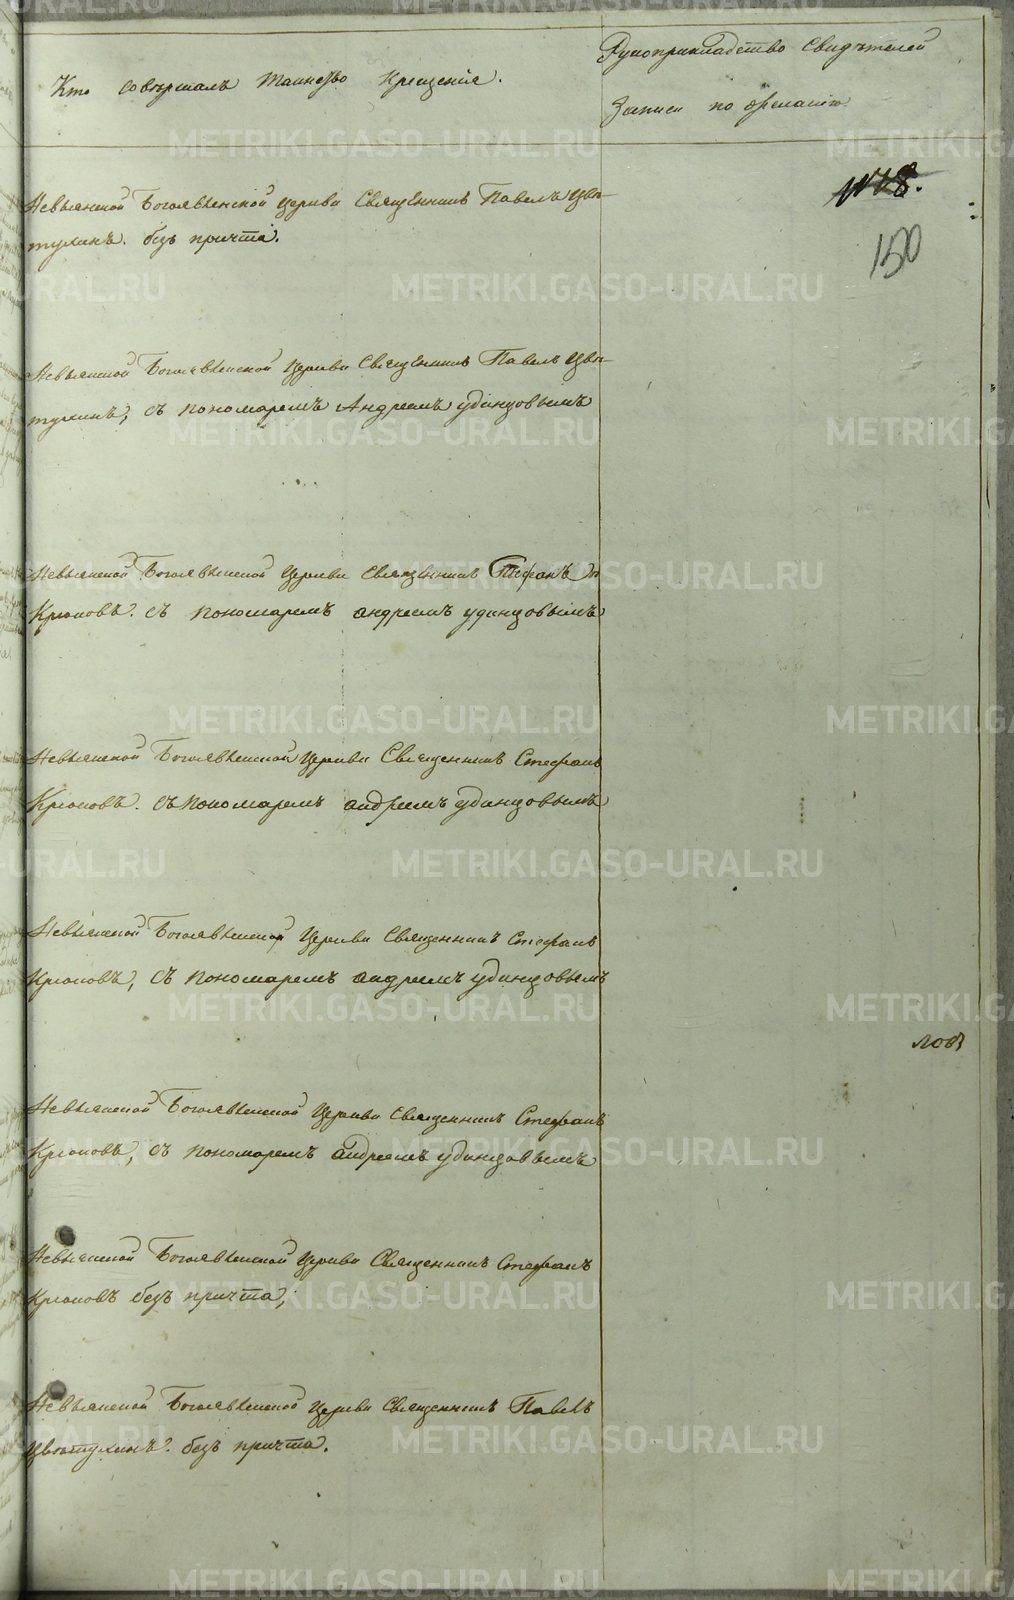 Кто совершалъ таинство крещенiя.
Рукоприкладство свидѣтелей
записи по желанiю
150
Невьянской Богоявленской церкви Священникъ Павелъ Цвѣ-
тухинъ. безъ причта.
Невьянской Богоявленской церкви Священникъ Павелъ Цвѣ-
тухинъ, съ пономаремъ Андреемъ удинцовымъ
Невьянской Богоявленской церкви Священникъ Стефанъ
Крюковъ. съ пономаремъ андреемъ удинцовымъ
Невьянской Богоявленской церкви Священникъ Стефанъ
Крюковъ. съ пономаремъ андреемъ удинцовымъ
Невьянской Богоявленской церкви Священникъ Стефанъ
Крюковъ, съ пономаремъ андреемъ удинцовымъ
Невьянской Богоявленской церкви Священникъ Стефанъ
Крюковъ, съ пономаремъ андреемъ удинцовымъ
Невьянской Богоявленской церкви Священникъ Стефанъ
Крюковъ безъ причта,
Невьянской Богоявленской церкви Священникъ Павелъ
Цвѣтухинъ. безъ причта.